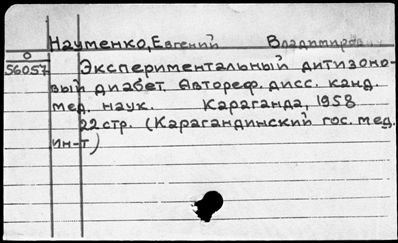 Науменко, Евгений Владимирович
56057 Экспериментальный дитизоно-
вый диабет. Автореф. дисс. канд.
мед. наук. Караганда, 1958
22 стр. (Карагандинский гос. мед.
ин-т)